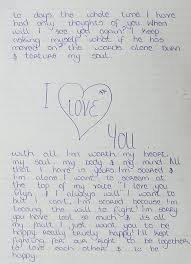 to days the whole time I have
had only thoughts of you when
will I see you again. I keep
asking myself what if he has
moved on the words alone burn
& torture my soul.
I
LOVE
YOU
with all I'm worth my heart
my soul my body & my mind. All
that I hope is years I'm scared &
I'm alone I want to scream at
the top of my voice I love you
I'll always will I want to
but I can't. I'm scared because I'm
loosing the will to fight I'm sorry
you have lost so much & its all
my fault I just want you to be
happy really truely happy I'll keep
fighting for our right to be together
to love each other & to be
happy